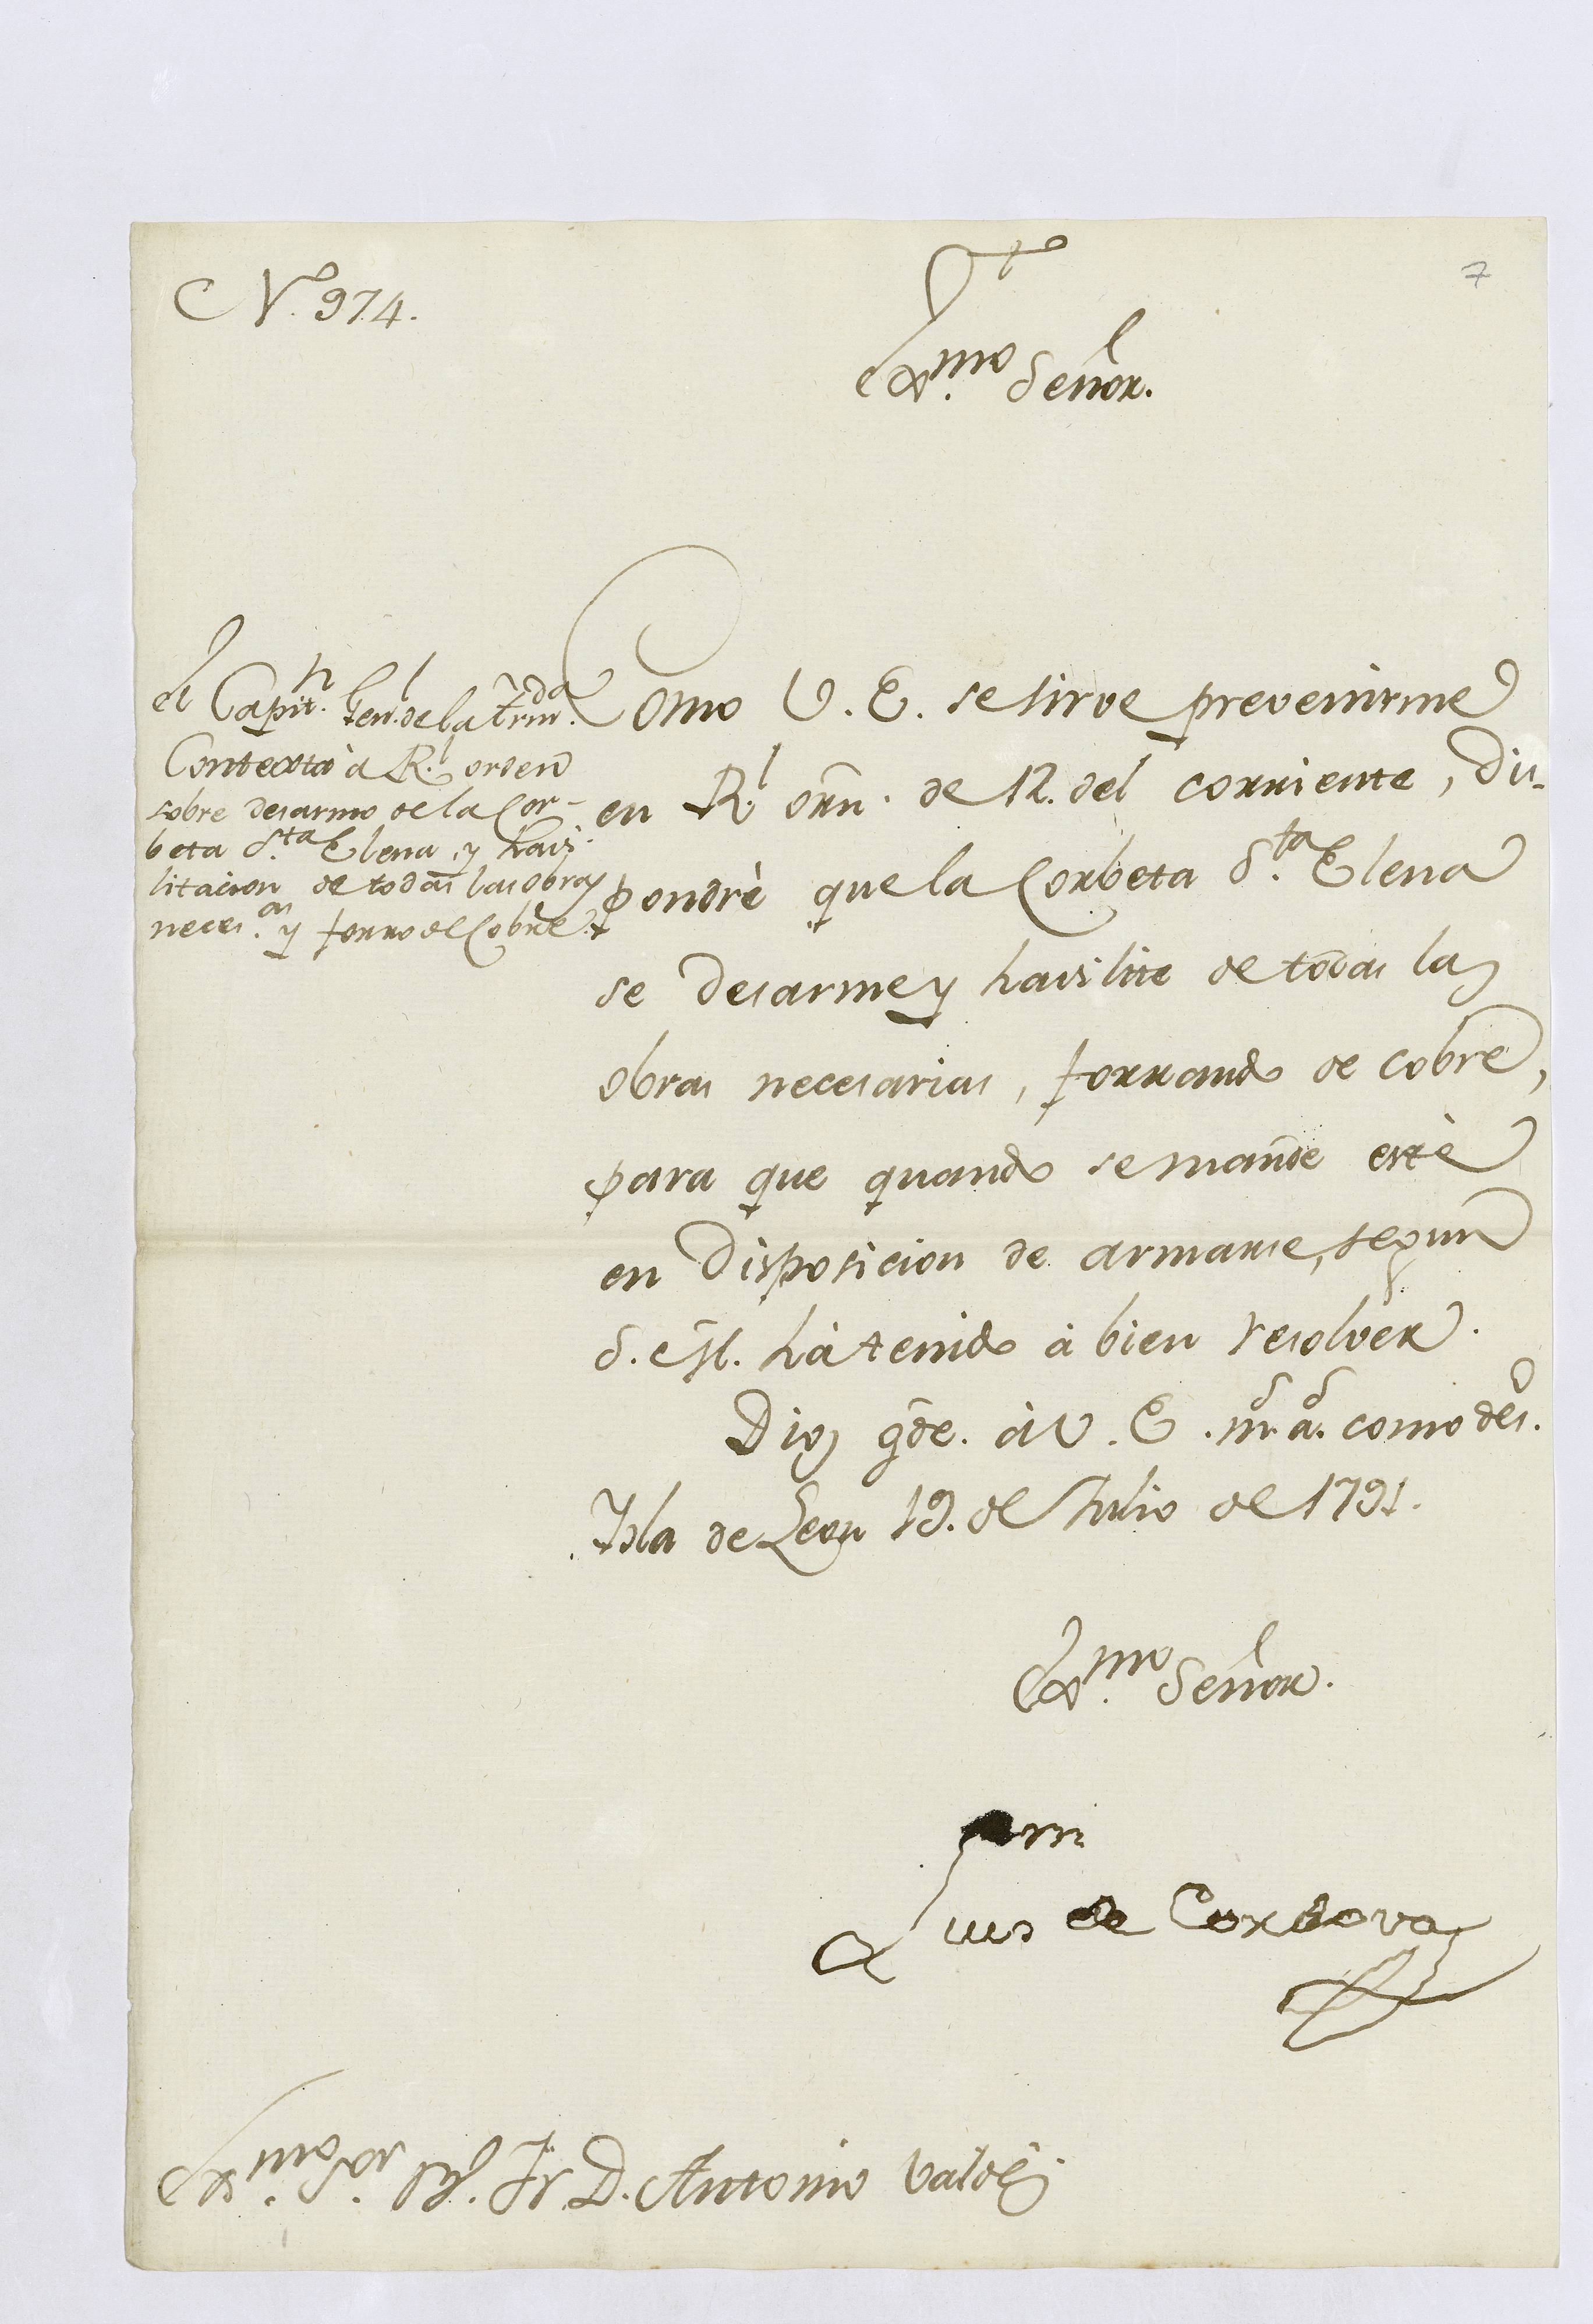 N.º 974.
7
Exmo. Señor.
El Capitn. Genl. de la Armda.
Contexta à Rl. orden
sobre desarmo de la Cor-
beta Sta. Elena, y havi-
litacion de todas las obras
neces.as y forro de Cobre.
Como V. E. se sirve prevenirme
en Rl. orñ. de 12. del corriente, dis-
pondrè que la Corbeta Sta. Elena
se desarme y havilite de todas las
obras necesarias, forrando de cobre,
para que quando se mande estè
en disposicion de armarse, segun
S. M. hà tenido à bien resolver.
Dios gde. à V. E. ms. as. como deso.
Isla de Leon 19. de Julio de 1791.
Exmo. Señor.
Luis de Cordova
Exmo. Sor. Bo. Fr. D. Antonio Valdés